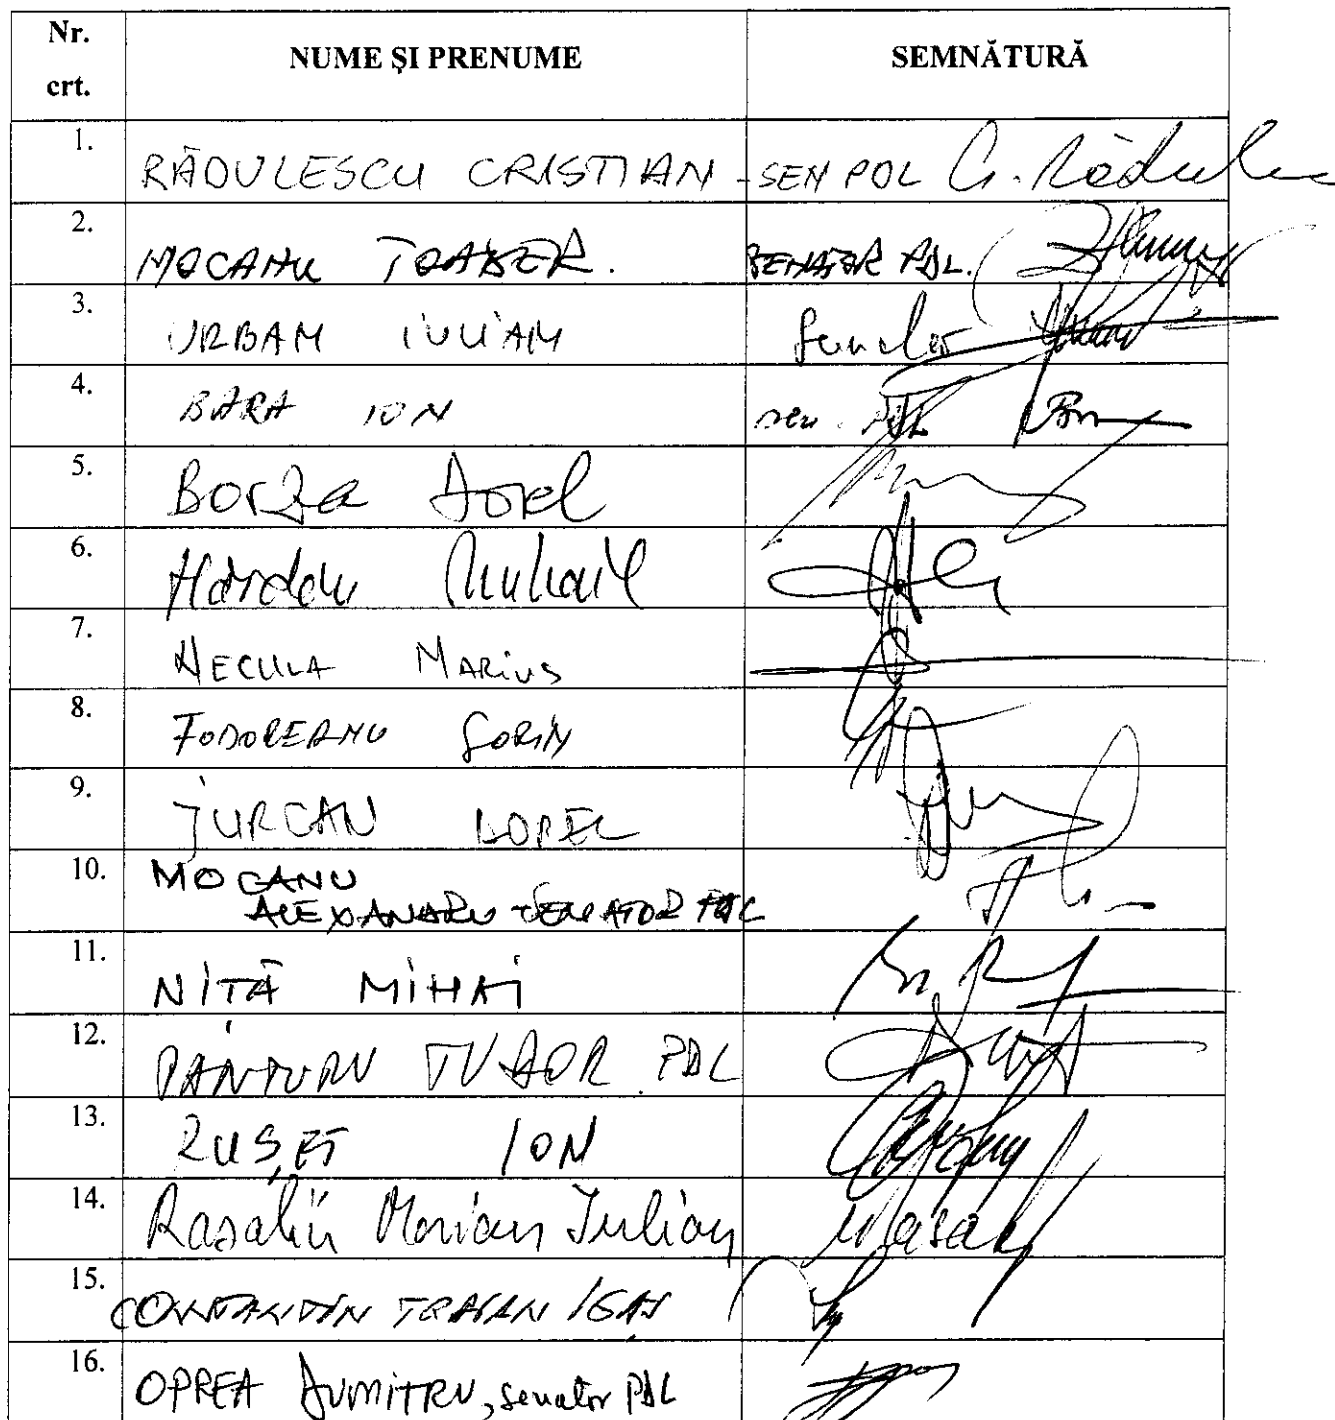 Nr. crt. NUME ŞI PRENUME SEMNĂTURĂ
1. RĂDULESCU CRISTIAN - SEN PDL C. Rădulescu
2. MOCANU TOADER. SENATOR PDL.
3. URBAN IULIAN Senator
4. BARA ION sen. PDL
5. Borza Dorel
6. Hărdău Mihail
7. NECULA MARIUS
8. FODOREANU SORIN
9. JURCAN DOREL
10. MOCANU
ALEXANDRU SENATOR PDL
11. NIŢĂ MIHAI
12. PÂNTURU TUDOR PDL
13. RUŞEŢ ION
14. Rasaliu Marian Iulian
15. CONSTANTIN TRAIAN IGAŞ
16. OPREA DUMITRU, senator PDL